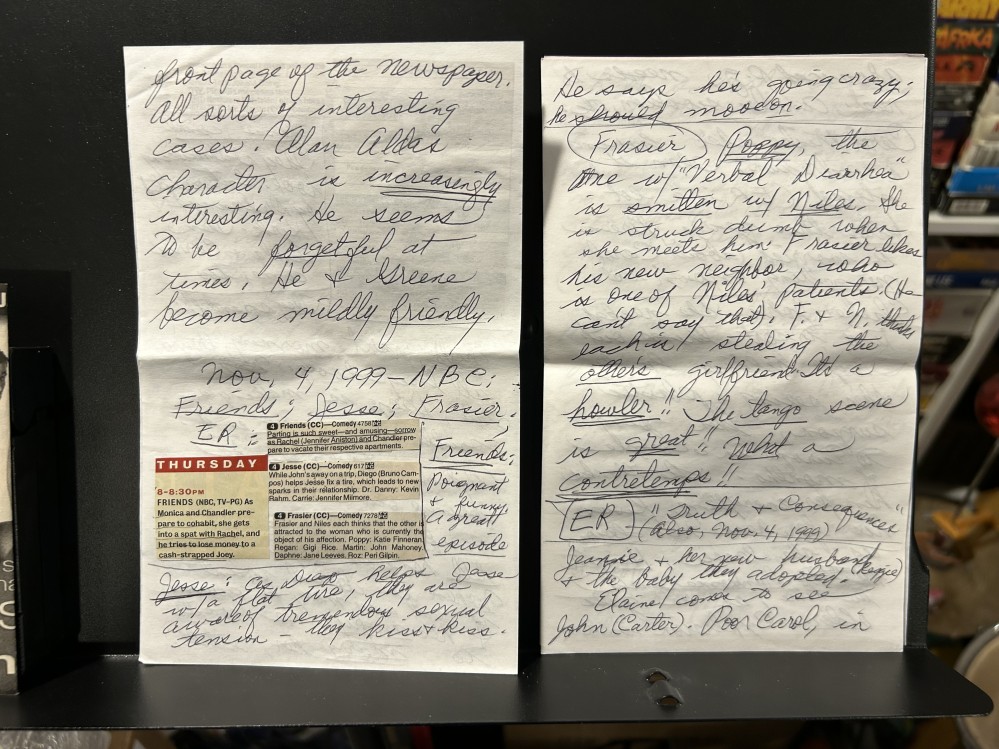 front page of the newspaper.
All sorts of interesting
cases. Alan Aldas
character is increasingly
interesting. He seems
to be forgetful at
times. He & Greene
become mildly friendly.
Nov. 4, 1999 - NBC:
Friends; Jesse; Frasier.
ER:
4 Friends (CC)—Comedy 4758
Parting is such sweet—and amusing—sorrow
as Rachel (Jennifer Aniston) and Chandler pre-
pare to vacate their respective apartments.
4 Jesse (CC)—Comedy 617
While John's away on a trip, Diego (Bruno Cam-
pos) helps Jesse fix a tire, which leads to new
sparks in their relationship. Dr. Danny: Kevin
Rahm. Carrie: Jennifer Milmore.
4 Frasier (CC)—Comedy 7278
Frasier and Niles each thinks that the other is
attracted to the woman who is currently the
object of his affection. Poppy: Katie Finneran.
Regan: Gigi Rice. Martin: John Mahoney.
Daphne: Jane Leeves. Roz: Peri Gilpin.
THURSDAY
8-8:30PM
FRIENDS (NBC, TV-PG) As
Monica and Chandler pre-
pare to cohabit, she gets
into a spat with Rachel, and
he tries to lose money to a
cash-strapped Joey.
Friends:
Poignant
& funny.
A great
episode
Jesse: as Diego helps Jesse
w/ a flat tire, they are
aware of tremendous sexual
tension - they kiss & kiss.
He says he's going crazy;
he should move on.
Frasier Poppy, the
one w/ "Verbal Diarrhea"
is smitten w/ Niles. She
is struck dumb when
she meets him. Frasier likes
his new neighbor, who
is one of Niles' patients. (He
can't say that). F. & N. thinks
each is stealing the
other's girlfriend. It's a
howler!! The tango scene
is great!! What a
contretemps!!
ER "Truth & Consequences"
(also, Nov. 4, 1999)
Jeannie & her new husband (Reggie)
& the baby they adopted.
Elaine comes to see
John (Carter). Poor Carol, in
AFRICA